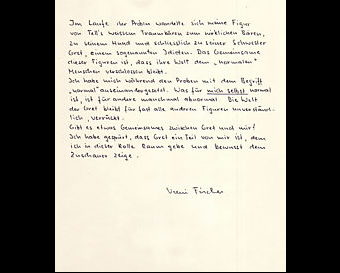 Im Laufe der Proben wandelte sich meine Figur
von Tell's weissem Traumbären, zum wirklichen Bären,
zu seinem Hund und schliesslich zu seiner Schwester
Gret, einem sogenannten Idioten. Das Gemeinsame
dieser Figuren ist, dass ihre Welt dem „normalen"
Menschen verschlossen bleibt.
Ich habe mich während den Proben mit dem Begriff
„normal" auseinandergesetzt. Was für mich selbst normal
ist, ist für andere manchmal abnormal. Die Welt
der Gret bleibt für fast alle anderen Figuren unverständ-
lich, verrückt.
Gibt es etwas Gemeinsames zwischen Gret und mir?
Ich habe gespürt, dass Gret ein Teil von mir ist, dem
ich in dieser Rolle Raum gebe und bewusst dem
Zuschauer zeige.
Vreni Fischer